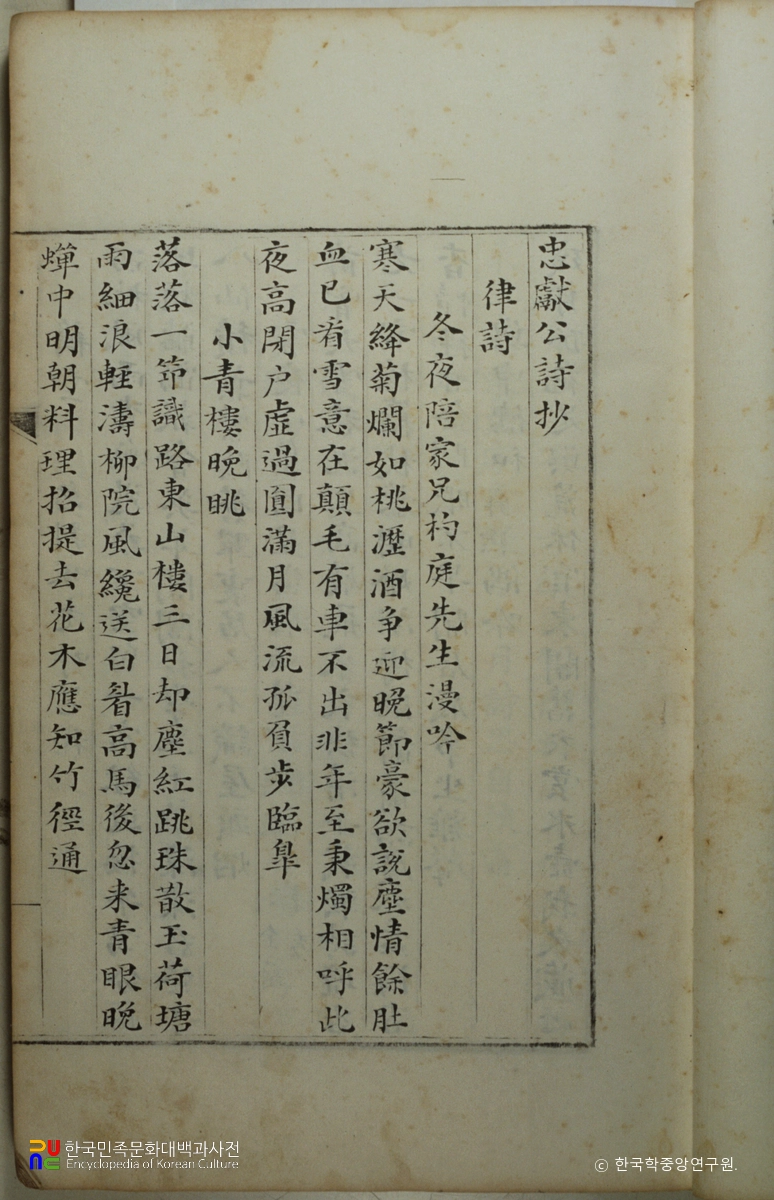 忠獻公詩抄
律詩
冬夜陪家兄杓庭先生漫吟
寒天絳菊爛如桃瀝酒爭迎晩節豪欲說塵情餘肚
血已看雪意在顚毛有車不出非年至秉燭相呼此
夜高閉户虛過圓滿月風流孤負步臨臯
小青樓晩眺
落落一笻識路東山樓三日却塵紅跳珠散玉荷塘
雨細浪輕濤柳院風纔送白看高馬後忽来青眼晩
蟬中明朝料理招提去花木應知竹徑通
한국민족문화대백과사전
Encyclopedia of Korean Culture
© 한국학중앙연구원.